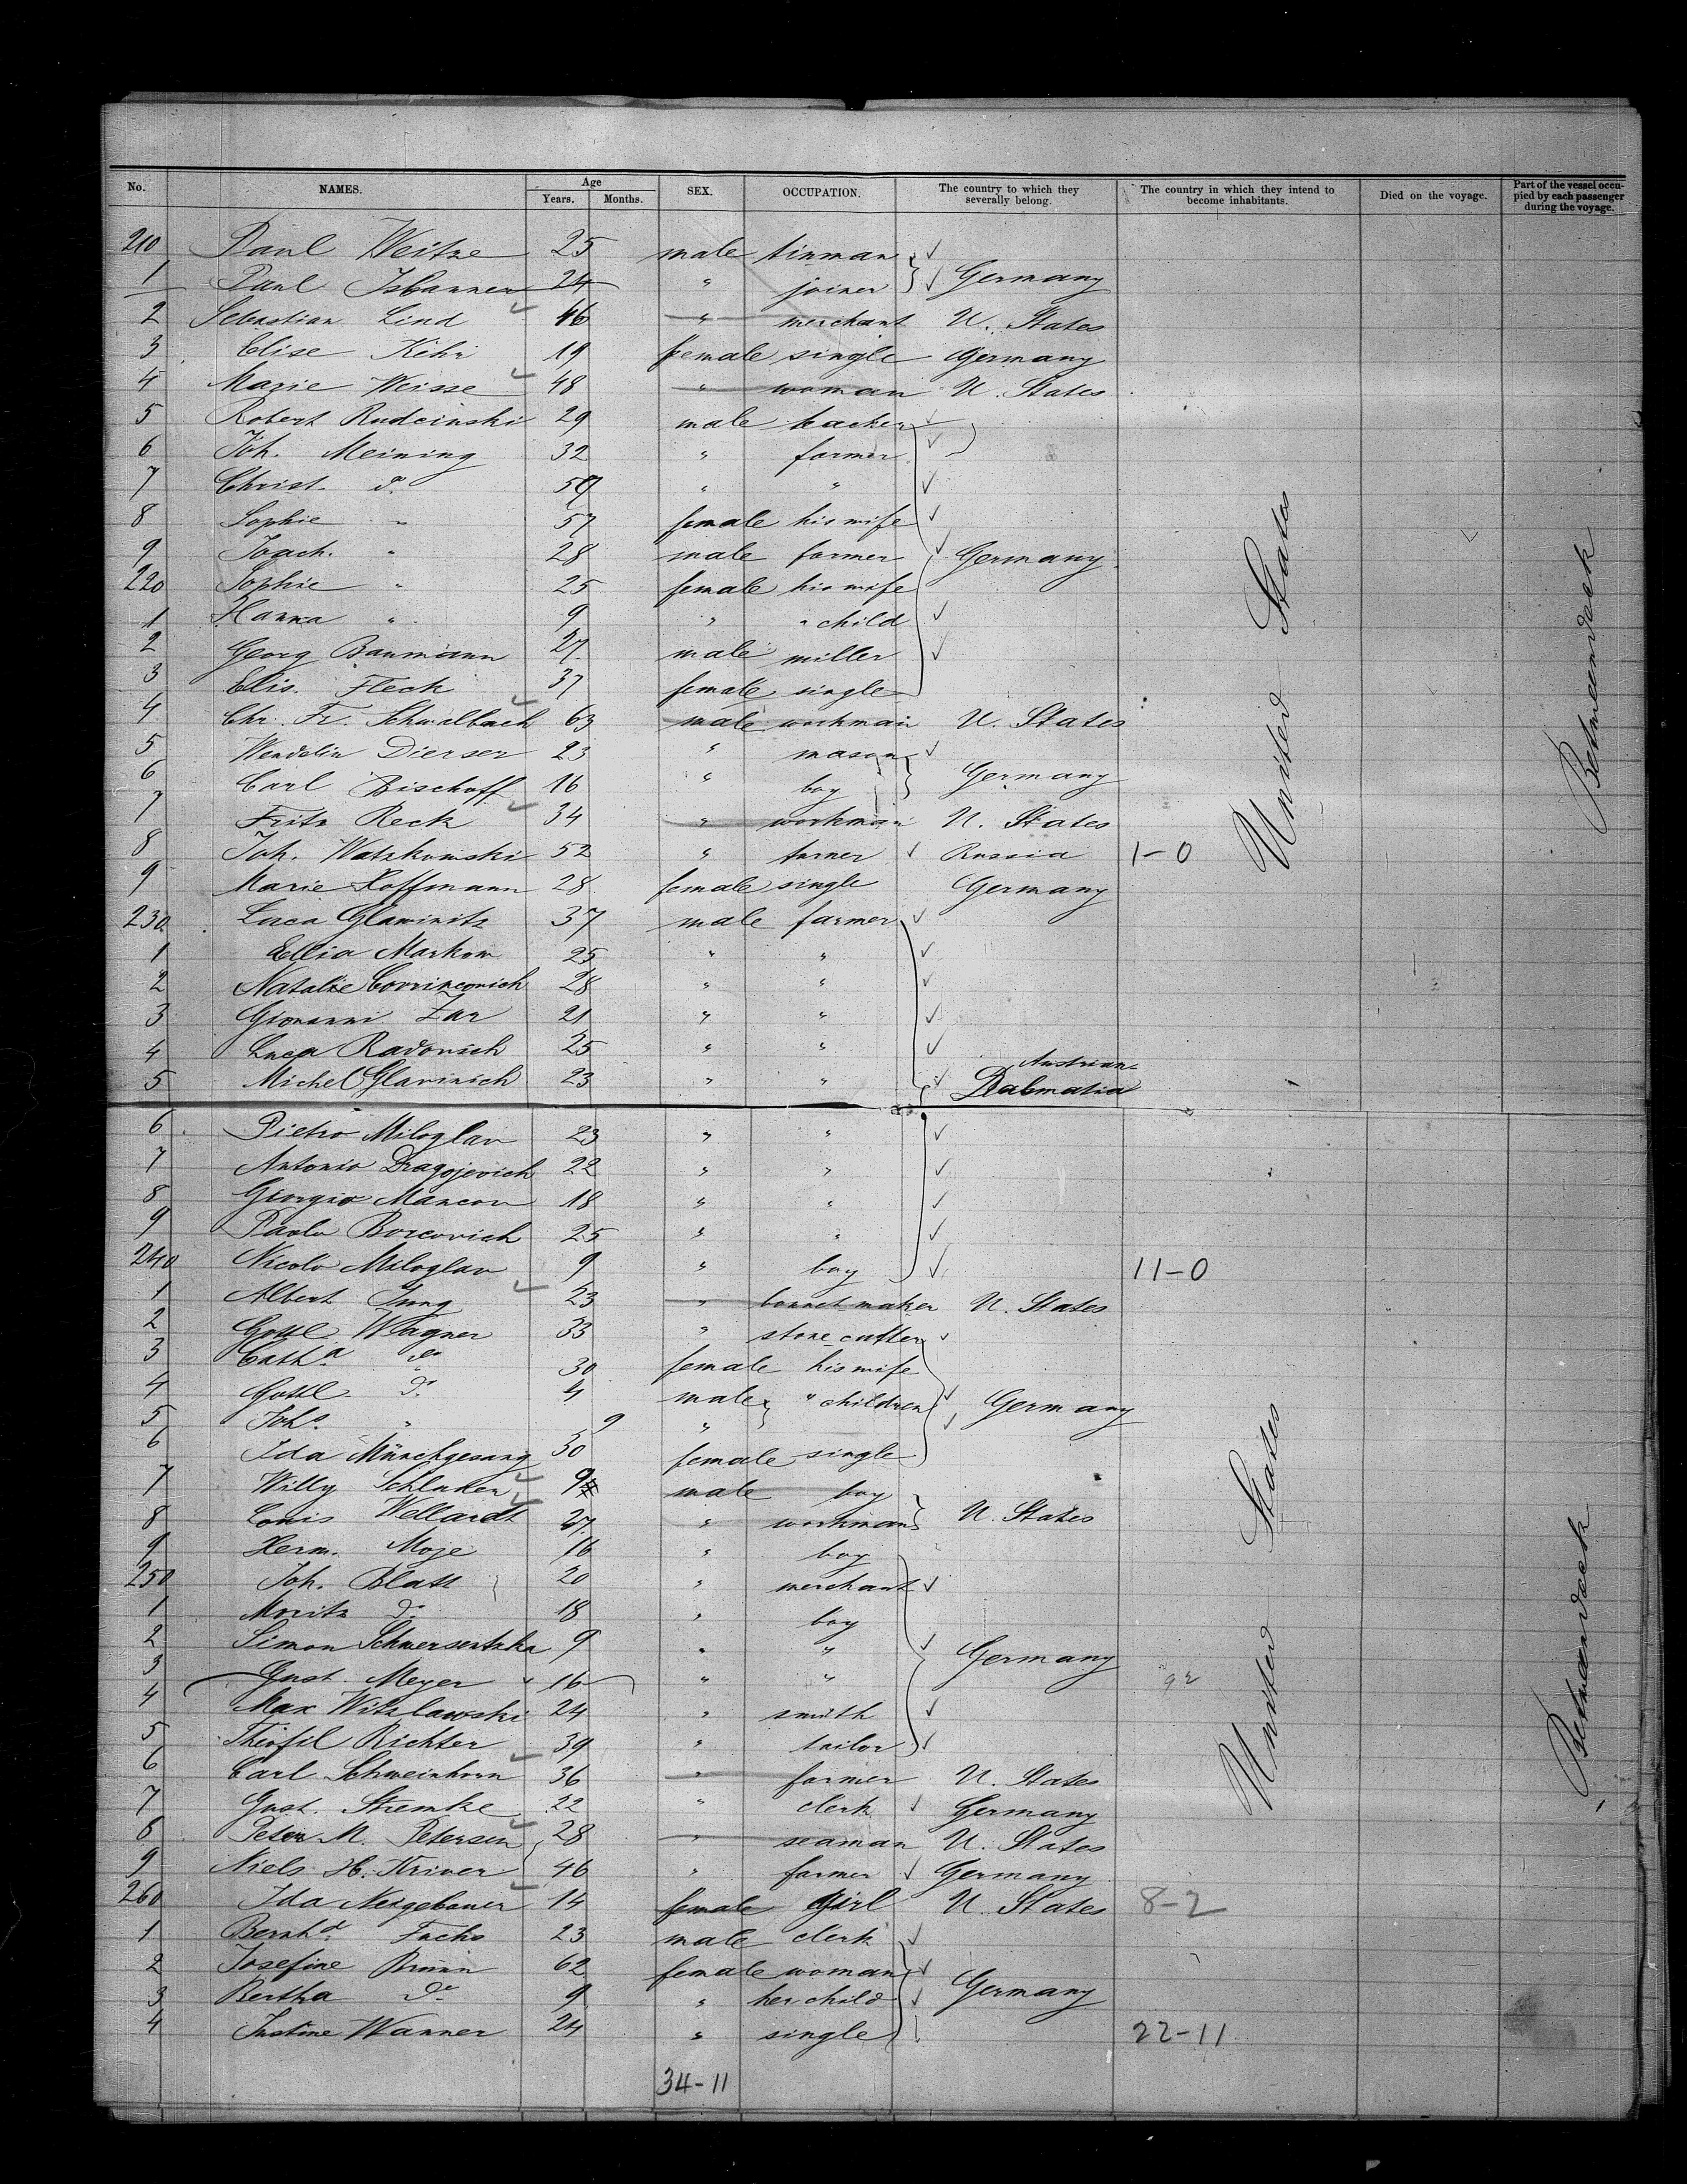 No. NAMES. Age Years. Months. SEX. OCCUPATION. The country to which they severally belong. The country in which they intend to become inhabitants. Died on the voyage. Part of the vessel occupied by each passenger during the voyage.
210 Paul Weitze 25 male tinman
1 Paul 24 " joiner Germany
2 Sebastian Lind 46 " merchant U. States
3 Elise Kihr 19 female single Germany
4 Marie Weisse 48 " woman U. States
5 Robert Rudcinski 29 male
6 Joh. Meining 32 " farmer
7 Christ. do 59 " "
8 Sophie " 57 female his wife
9 Joach. " 28 male farmer Germany
220 Sophie " 25 female his wife
1 Hanna " 9 " " child
2 Georg Baumann 27 male miller
3 Elis. Fleck 37 female single
4 Chr. Fr. Schwalbach 63 male workman U. States
5 Wendelin Dierser 23 " mason
6 Carl Bischoff 16 " boy Germany
7 Fritz Reck 34 " workman U. States
8 Joh. Watzkowski 52 " turner Russia 1-0
9 Marie Hoffmann 28 female single Germany
230 Luca Glawinitz 37 male farmer
1 Ellia Markow 25 " "
2 Natalie 28 " "
3 Giovanni Zar 21 " "
4 Luca Radovich 25 " "
5 Michel Glavinich 23 " " Austrian Dalmatia
United States
Betweendeck
6 Pietro Miloglav 23 " "
7 Antonio Dragojevich 22 " "
8 Giorgio Marcon 18 " "
9 Paolo Borcovich 25 " "
240 Nicolo Miloglav 9 " boy 11-0
1 Albert Jung 23 " bonnet maker U. States
2 Gottl Wagner 33 " stone cutter
3 Catha do 30 female his wife
4 Gottl do 4 male " children Germany
5 Johs " 9 "
6 Ida Münchgesang 30 female single
7 Willy Schluker 9 male boy
8 Louis Wellardt 27 " workman U. States
9 Herm. Moje 16 " boy
250 Joh. Blatt 20 " merchant
1 Moritz do 18 " boy
2 Simon Schwersentzka 9 " "
3 Gust. Meyer 16 " " Germany
4 Max Witzlawski 24 " smith
5 Theofil Richter 39 " tailor
6 Carl Schweinhorn 36 " farmer U. States
7 Gust. Stremke 22 " clerk Germany
8 Peter M. Petersen 28 " seaman U. States
9 Niels H. Kriver 46 " farmer Germany
260 Ida Neigebauer 14 female girl U. States 8-2
1 Bernhd Fuchs 23 male clerk
2 Josefine Brünn 62 female woman
3 Bertha do 9 " her child Germany
4 Justine Wanner 24 " single 22-11
United States
Betweendeck
34-11